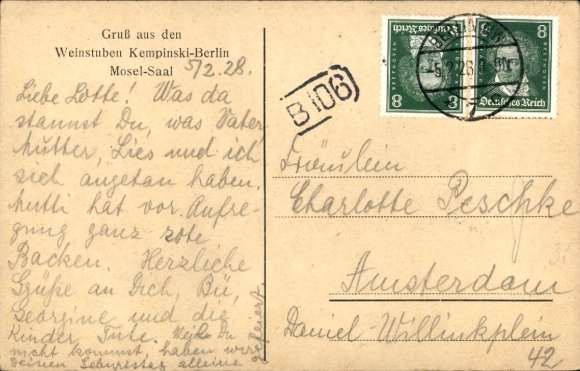 Gruß aus den
Weinstuben Kempinski-Berlin
Mosel-Saal
5/2.28.
Liebe Lotte! Was da
staunst Du, was Vater
Mutter, Lies und ich
sich angetan haben.
Mutti hat vor Aufre-
gung ganz rote
Backen. Herzliche
Grüße an Dich,
Georgine und die
Kinder Tute. Weil Du
nicht kommst, haben wir
deinen Geburtstag alleine
gefeiert
B106
8
BEETHOVEN
Deutsches Reich
8
BEETHOVEN
Deutsches Reich
BERLIN
Fräulein
Charlotte Peschke
Amsterdam
Daniel-Willinkplein
42